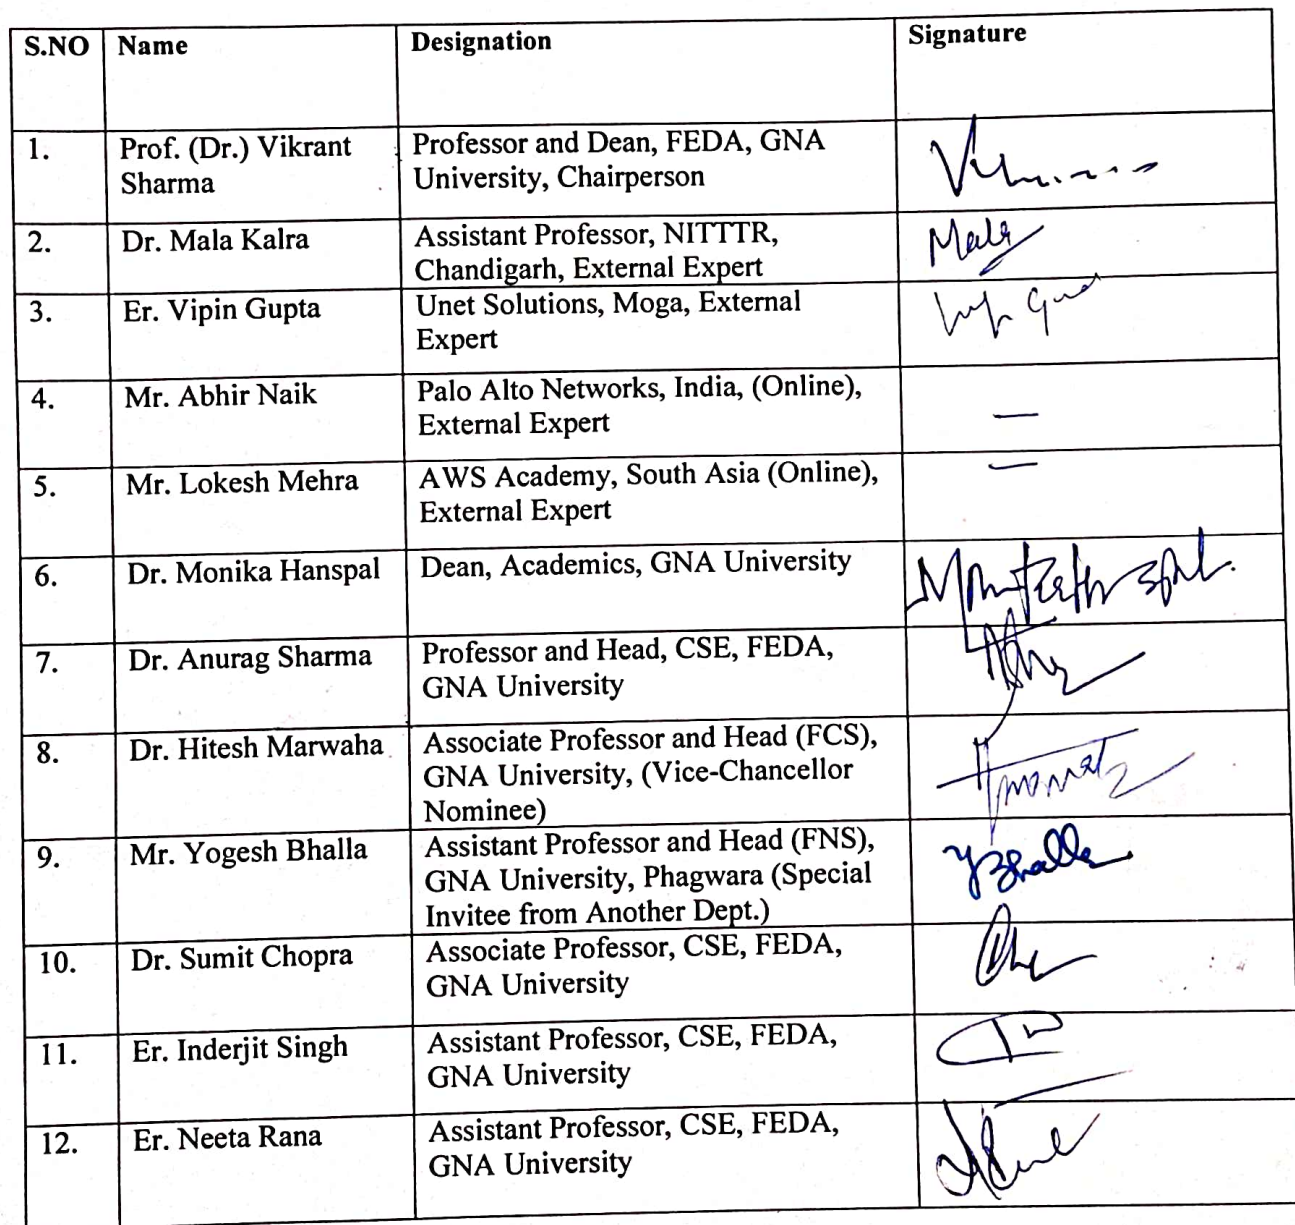 S.NO Name Designation Signature
1. Prof. (Dr.) Vikrant Professor and Dean, FEDA, GNA
Sharma University, Chairperson
2. Dr. Mala Kalra Assistant Professor, NITTTR, Mala
Chandigarh, External Expert
3. Er. Vipin Gupta Unet Solutions, Moga, External
Expert
4. Mr. Abhir Naik Palo Alto Networks, India, (Online), —
External Expert
5. Mr. Lokesh Mehra AWS Academy, South Asia (Online), —
External Expert
6. Dr. Monika Hanspal Dean, Academics, GNA University
7. Dr. Anurag Sharma Professor and Head, CSE, FEDA,
GNA University
8. Dr. Hitesh Marwaha Associate Professor and Head (FCS),
GNA University, (Vice-Chancellor
Nominee)
9. Mr. Yogesh Bhalla Assistant Professor and Head (FNS), YBhalla
GNA University, Phagwara (Special
Invitee from Another Dept.)
10. Dr. Sumit Chopra Associate Professor, CSE, FEDA,
GNA University
11. Er. Inderjit Singh Assistant Professor, CSE, FEDA,
GNA University
12. Er. Neeta Rana Assistant Professor, CSE, FEDA,
GNA University